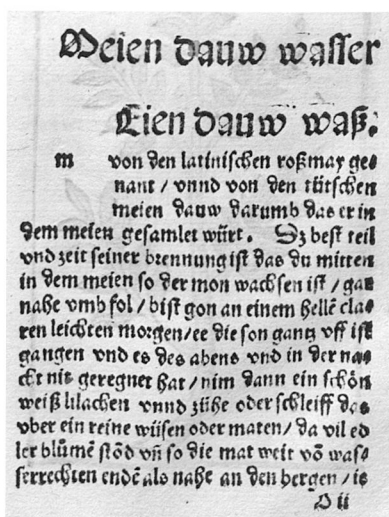 Meien dauw wasser
Eien dauw waß.
m von den latinischen roßmay ge⸗
nant / vnnd von den tütschen
meien dauw darumb das er in
dem meien gesamlet würt. Dz best teil
vnd zeit seiner brennung ist das du mitten
in dem meien so der mon wachsen ist / gar
nahe vmb fol / bist gon an einem hellē cla⸗
ren leichten morgen / ee die son gantz vff ist
gangen vnd es des abens vnd in der na⸗
cht nit geregnet hat / nim dann ein schön
weiß lilachen vnnd zühe oder schleiff das
vber ein reine wüsen oder maten / da vil ed
ler blůmē stōd vñ so die mat weit vō was⸗
serrechten endē als nahe an den bergen / ie
D ii